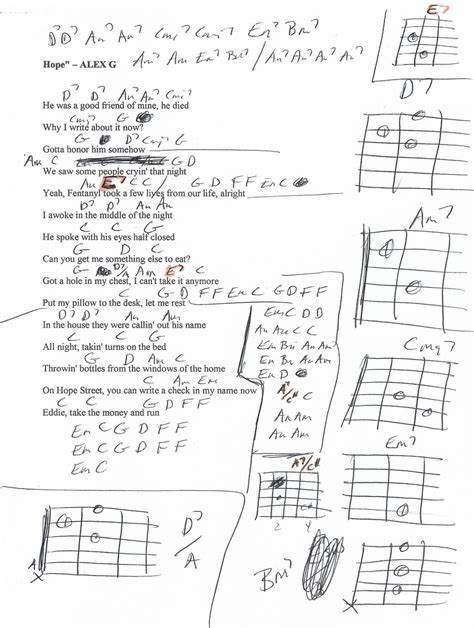 E7
D7 D7 Am7 Am7 Cmj7 Cmj7 Em7 Bm7
Hope" – ALEX G Am7 Am Em7 Bm7 / Am7 Am7 Am7 Am7
D7
D7 D7 Am7 Am7 Cmj7
He was a good friend of mine, he died
Cmj7 G
Why I write about it now?
G D7 Cmj7 G
Gotta honor him somehow
Am C G D
We saw some people cryin' that night
Am E7 C C / G D F F Em C
Yeah, Fentanyl took a few lives from our life, alright
D7 D7 Am Am
I awoke in the middle of the night
Am7
C C G
He spoke with his eyes half closed
G D C
Can you get me something else to eat?
G D7/A Am E7 C
Got a hole in my chest, I can't take it anymore
C G D F F Em C G D F F
Put my pillow to the desk, let me rest
D7 D7 Am Am
In the house they were callin' out his name
C C G
All night, takin' turns on the bed
G D Am C
Throwin' bottles from the windows of the home
C Am Em
On Hope Street, you can write a check in my name now
C C G D F F
Eddie, take the money and run
Em C G D F F
Em C G D F F
Em C
Em C D D
Am Am C C
Em Bm Am Am
Em Bm Am Am
Em D
A7/C# C
Am Am
Am Am
Cmj7
Em7
A7/C#
2 4
D7/A
A
X
Bm7
X